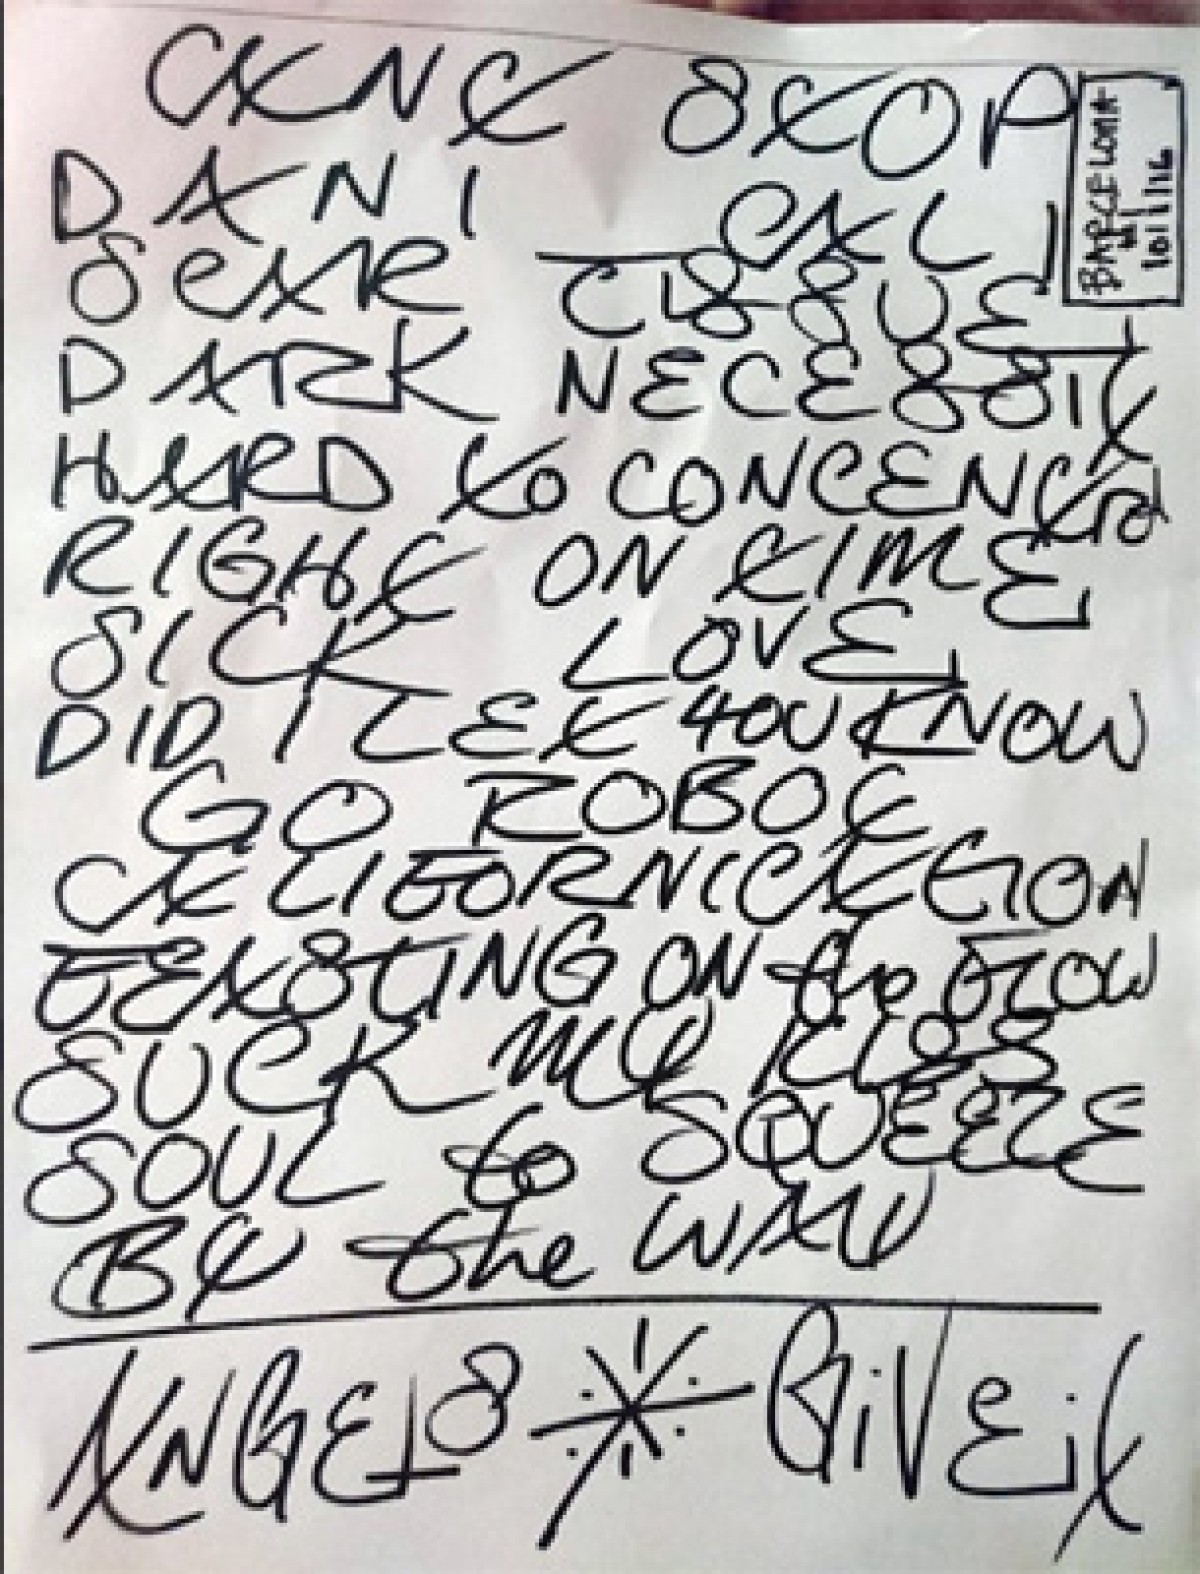 CAN'T STOP
DANI CALI
SCAR TISSUE
DARK NECESSITI
HARD to CONCENTRA
RIGHT ON TIME
SICK LOVE
DID I LET YOU KNOW
GO ROBOT
CALIFORNICATION
FEASTING ON the FLOW
SUCK MY KISS
SOUL to SQUEEZE
BY the WAY
ANGELS GiVEiT
BARCELONA
10/1/16